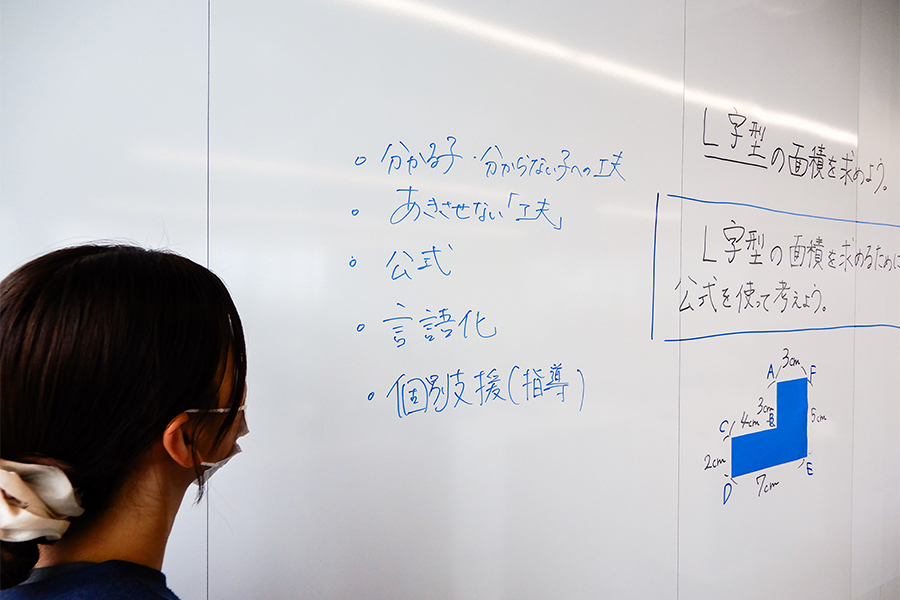 ○ 分かる子・分からない子への工夫
○ あきさせない「工夫」
○ 公式
○ 言語化
○ 個別支援(指導)
L字型の面積を求めよう。
L字型の面積を求めるために
公式を使って考えよう。
3cm
A F
3cm
B
5cm
C 4cm
2cm
D 7cm E